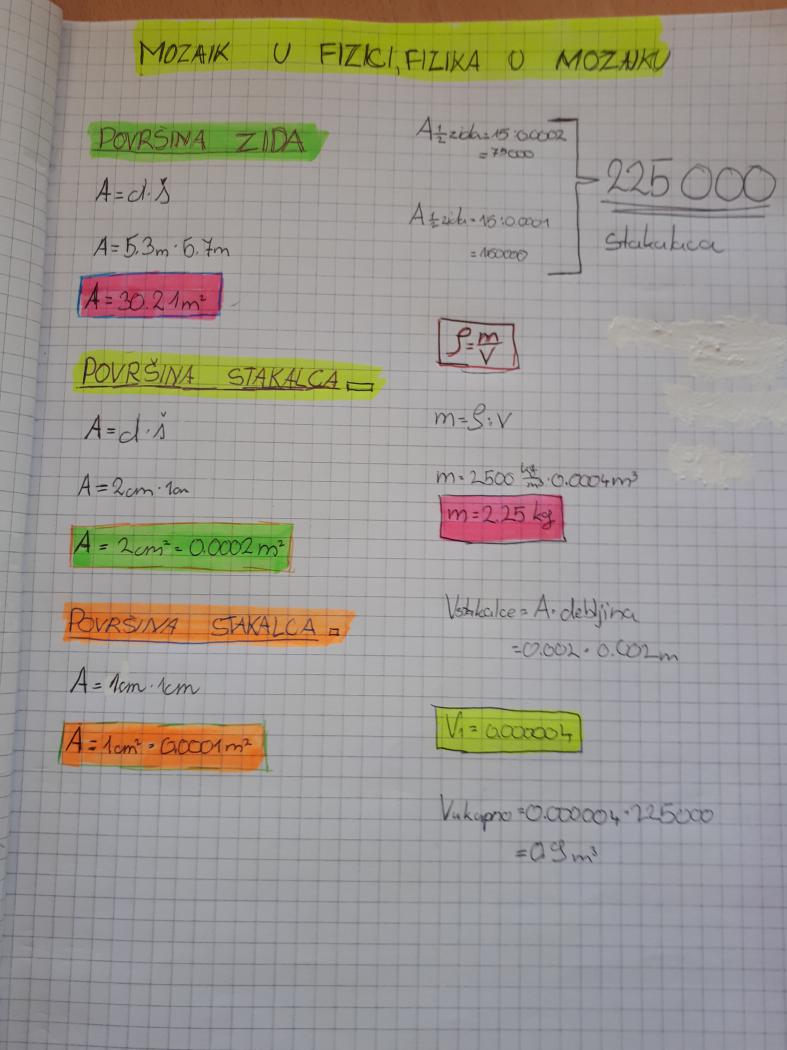 MOZAIK U FIZICI, FIZIKA U MOZAIKU
POVRŠINA ZIDA
A=d·š
A=5.3m·5.7m
A=30.21m²
POVRŠINA STAKALCA
A=d·š
A=2cm·1cm
A=2cm²=0.0002m²
POVRŠINA STAKALCA
A=1cm·1cm
A=1cm²=0.0001m²
A½zida=15:0.0002
=75000
A½zida=15:0.0001
=150000
225 000
stakalaca
ρ=m/V
m=ρ·V
m=2500 kg/m³·0.0004m³
m=2.25 kg
Vstakalce=A·debljina
=0.002·0.002m
V₁=0.000004
Vukupno=0.000004·225000
=0.9m³